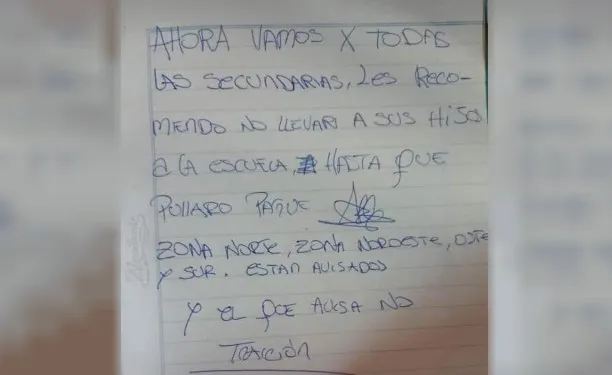 AHORA VAMOS X TODAS
LAS SECUNDARIAS, LES RECO-
MENDO NO LLEVAR A SUS HIJOS
A LA ESCUELA, HASTA QUE
PULLARO PAGUE
ZONA NORTE, ZONA NOROESTE, OSTE
Y SUR. ESTAN AVISADOS
Y EL QUE AVISA NO
TRAICIÓN